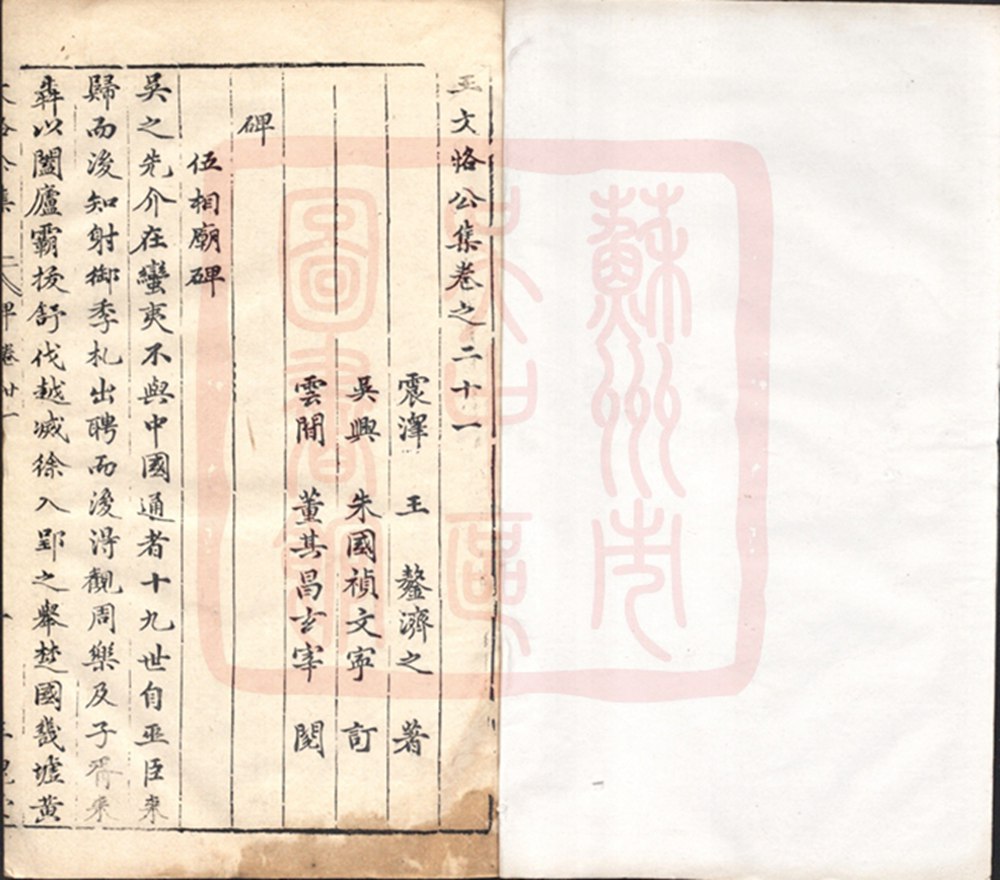 王文恪公集卷之二十一
震澤 王 鏊濟之 著
吳興 朱國禎文寧 訂
雲間 董其昌玄宰 閱
碑
伍相廟碑
吳之先介在蠻夷不與中國通者十九世自巫臣來
歸而後知射御季札出聘而後得觀周樂及子胥來
犇以闔廬霸拔舒伐越滅徐入郢之舉楚國幾墟黃
碑卷廿一
蘇州市
吳中區
圖書館